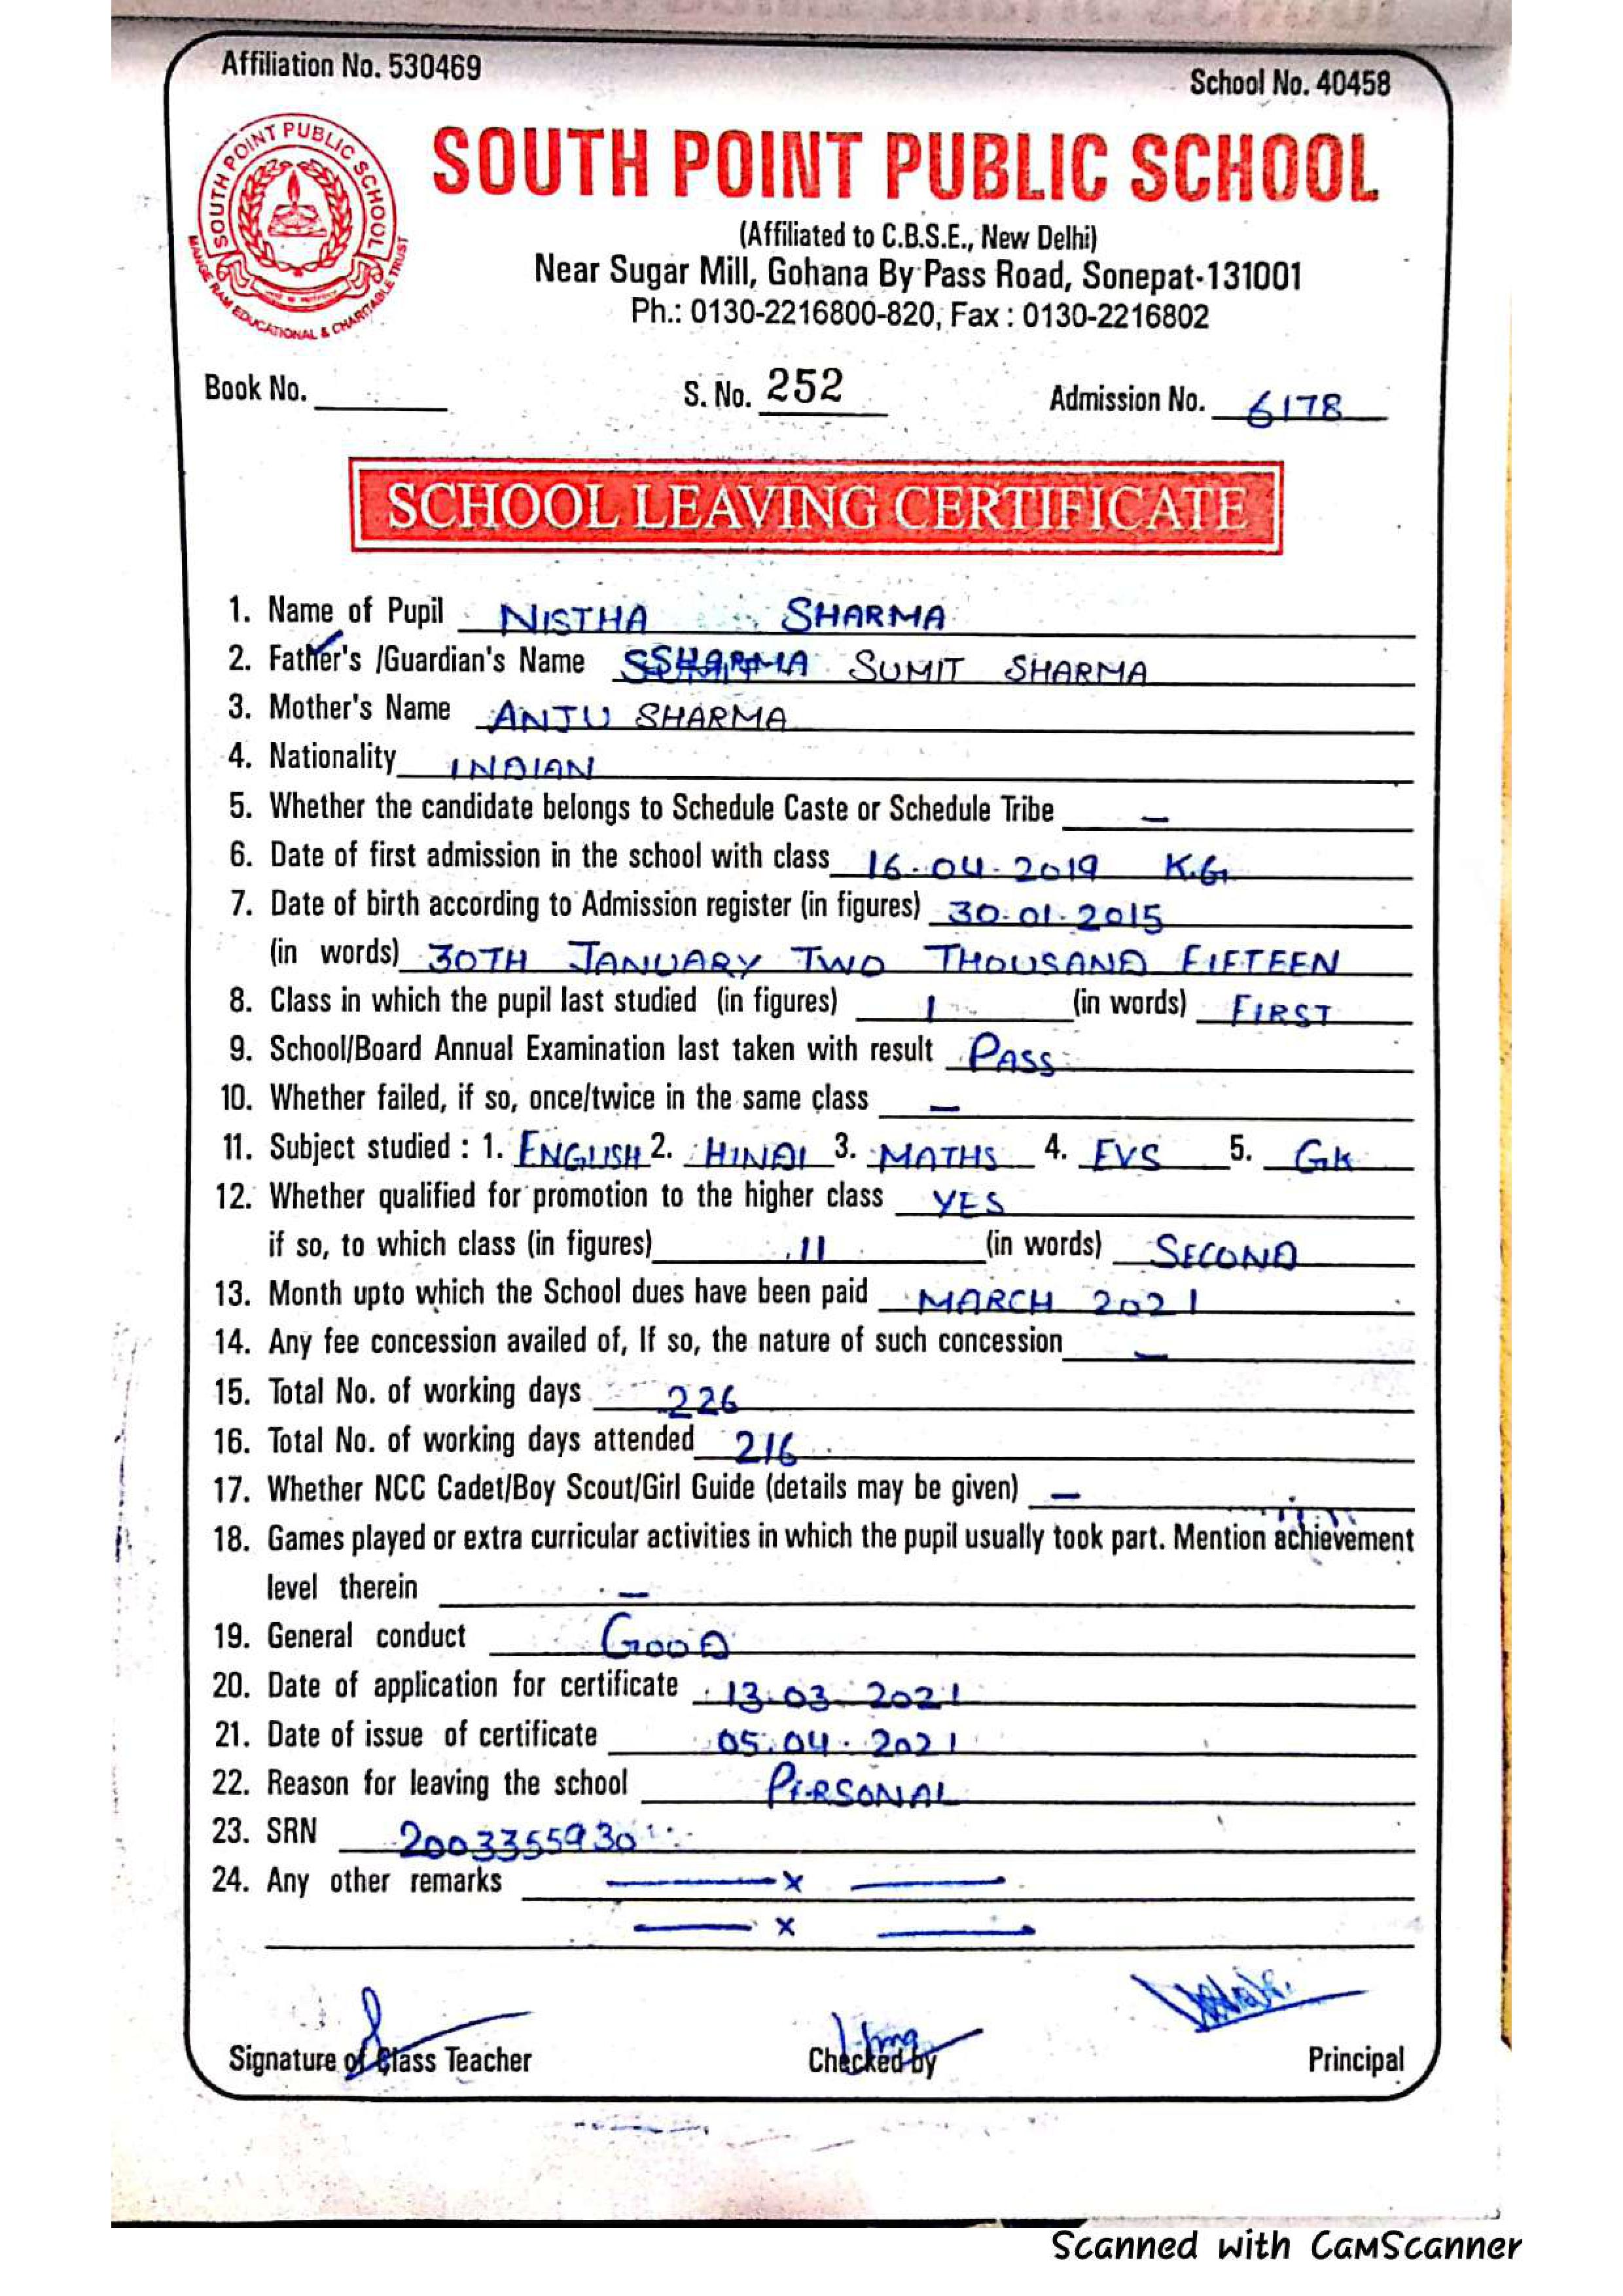 Affiliation No. 530469
School No. 40458
SOUTH POINT PUBLIC SCHOOL
MANGE RAM EDUCATIONAL & CHARITABLE TRUST
SOUTH POINT PUBLIC SCHOOL
(Affiliated to C.B.S.E., New Delhi)
Near Sugar Mill, Gohana By Pass Road, Sonepat-131001
Ph.: 0130-2216800-820, Fax : 0130-2216802
Book No. S. No. 252 Admission No. 6178
SCHOOL LEAVING CERTIFICATE
1. Name of Pupil NISTHA SHARMA
2. Father's /Guardian's Name SUMIT SHARMA
3. Mother's Name ANJU SHARMA
4. Nationality INDIAN
5. Whether the candidate belongs to Schedule Caste or Schedule Tribe –
6. Date of first admission in the school with class 16-04-2019 K.G
7. Date of birth according to Admission register (in figures) 30-01-2015
(in words) 30TH JANUARY TWO THOUSAND FIFTEEN
8. Class in which the pupil last studied (in figures) I (in words) FIRST
9. School/Board Annual Examination last taken with result PASS
10. Whether failed, if so, once/twice in the same class –
11. Subject studied : 1. ENGLISH 2. HINDI 3. MATHS 4. EVS 5. GK
12. Whether qualified for promotion to the higher class YES
if so, to which class (in figures) II (in words) SECOND
13. Month upto which the School dues have been paid MARCH 2021
14. Any fee concession availed of, If so, the nature of such concession –
15. Total No. of working days 226
16. Total No. of working days attended 216
17. Whether NCC Cadet/Boy Scout/Girl Guide (details may be given) –
18. Games played or extra curricular activities in which the pupil usually took part. Mention achievement
level therein –
19. General conduct GOOD
20. Date of application for certificate 13.03.2021
21. Date of issue of certificate 05.04.2021
22. Reason for leaving the school PERSONAL
23. SRN 2003355930
24. Any other remarks —— x ——
—— x ——
Signature of Class Teacher Checked by Principal
Scanned with CamScanner